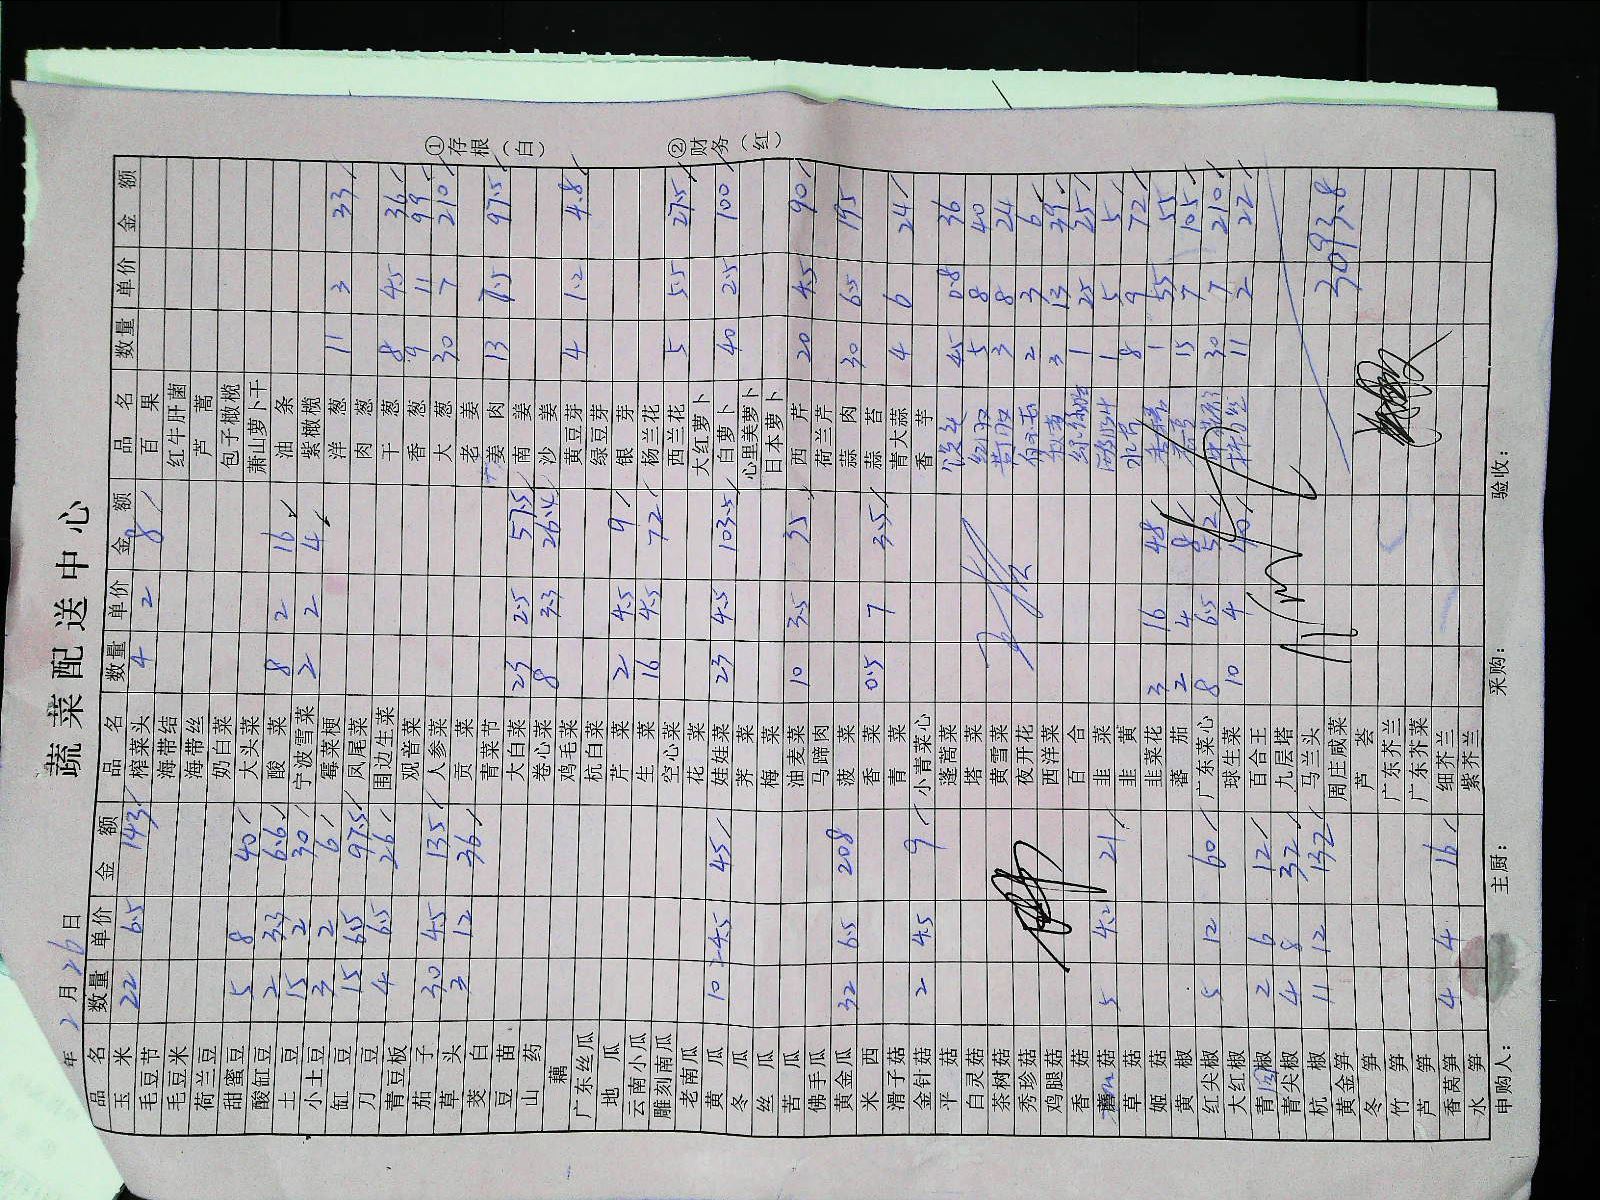 蔬菜配送中心
年 2 月 26 日
品名 数量 单价 金额 品名 数量 单价 金额 品名 数量 单价 金额
玉米 22 6.5 143 榨菜头 4 2 8 百果
毛豆节 海带结 红牛肝菌
毛豆米 海带丝 芦蒿
荷兰豆 奶白菜 包子橄榄
甜蜜豆 5 8 40 大头菜 萧山萝卜干
酸缸豆 2 3.3 6.6 酸菜 8 2 16 油条
土豆 15 2 30 宁波雪菜 2 2 4 紫橄榄
小土豆 3 2 6 霉菜梗 洋葱 11 3 33
缸豆 15 6.5 97.5 凤尾菜 肉葱
刀豆 4 6.5 26 围边生菜 干葱 8 4.5 36
青豆板 观音菜 香葱 9 11 99
茄子 30 4.5 135 人参菜 大葱 30 7 210
草头 3 12 36 贡菜 老姜
茭白 青菜节 姜肉 13 7.5 97.5
豆苗 大白菜 23 2.5 57.5 南姜
山药 卷心菜 8 3.3 26.4 沙姜
藕 鸡毛菜 黄豆芽 4 1.2 4.8
广东丝瓜 杭白菜 绿豆芽
地瓜 芹菜 2 4.5 9 银芽
云南小瓜 生菜 16 4.5 72 杨兰花
雕刻南瓜 空心菜 西兰花 5 5.5 27.5
老南瓜 花菜 大红萝卜
黄瓜 10 4.5 45 娃娃菜 23 4.5 103.5 白萝卜 40 2.5 100
冬瓜 荠菜 心里美萝卜
丝瓜 梅菜 日本萝卜
苦瓜 油麦菜 10 3.5 35 西芹 20 4.5 90
佛手瓜 马蹄肉 荷兰芹
黄金瓜 32 6.5 208 菠菜 蒜肉 30 6.5 195
米西 香菜 0.5 7 3.5 蒜苔
滑子菇 青菜 青大蒜 4 6 24
金针菇 2 4.5 9 小青菜心 香芋
平菇 蓬蒿菜 45 0.8 36
白灵菇 塔菜 5 8 40
茶树菇 黄雪菜 3 8 24
秀珍菇 夜开花 2 3 6
鸡腿菇 西洋菜 3 13 39
香菇 百合 1 25 25
蘑菇 5 4.2 21 韭菜 1 5 5
草菇 韭黄 8 9 72
姬菇 韭菜花 3 16 48 1 55 55
黄椒 蕃茄 2 4 8 15 7 105
红尖椒 5 12 60 广东菜心 8 6.5 52 30 7 210
大红椒 球生菜 10 4 40 11 2 22
青椒 2 6 12 百合王
青尖椒 4 8 32 九层塔
杭椒 11 12 132 马兰头 3093.8
黄金笋 周庄咸菜
冬笋 芦荟
竹笋 广东芥兰
芦笋 广东芥菜
香莴笋 4 4 16 细芥兰
水笋 紫芥兰
申购人： 主厨： 采购： 验收：
①存根（白）
②财务（红）